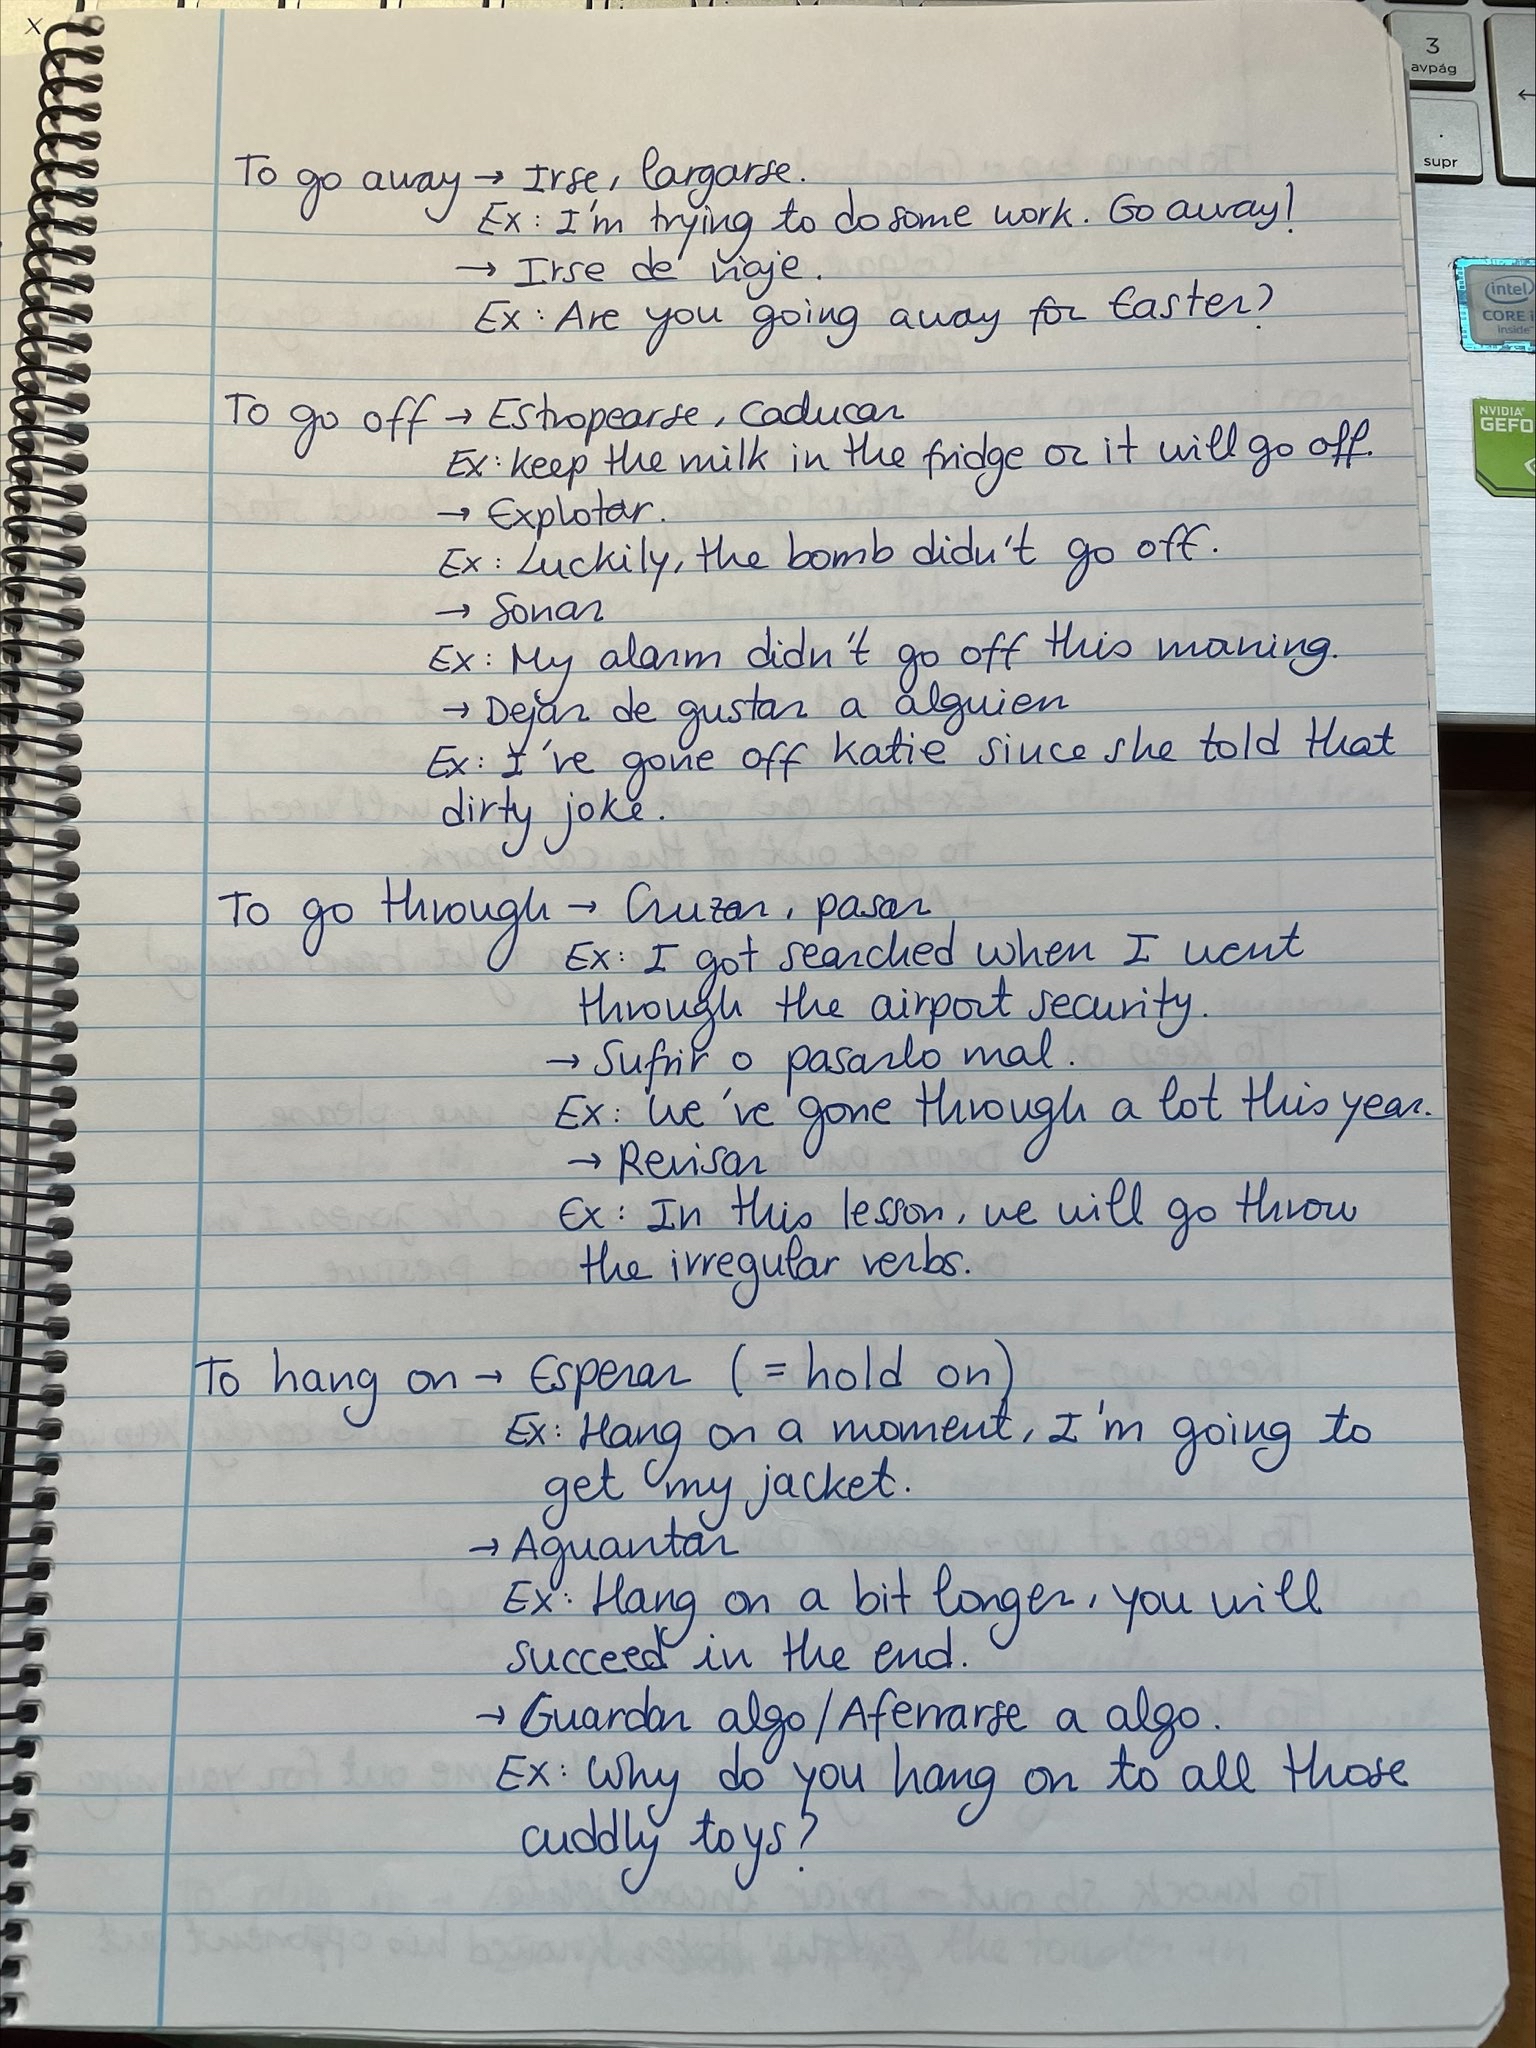 To go away → Irse, largarse.
Ex: I'm trying to do some work. Go away!
→ Irse de viaje.
Ex: Are you going away for Easter?
To go off → Estropearse, caducar
Ex: keep the milk in the fridge or it will go off.
→ Explotar.
Ex: Luckily, the bomb didn't go off.
→ Sonar
Ex: My alarm didn't go off this morning.
→ Dejar de gustar a alguien
Ex: I've gone off Katie since she told that
dirty joke.
To go through → Cruzar, pasar
Ex: I got searched when I went
through the airport security.
→ Sufrir o pasarlo mal.
Ex: We've gone through a lot this year.
→ Revisar
Ex: In this lesson, we will go throw
the irregular verbs.
To hang on → Esperar (= hold on)
Ex: Hang on a moment, I'm going to
get my jacket.
→ Aguantar
Ex: Hang on a bit longer, you will
succeed in the end.
→ Guardar algo/Aferrarse a algo.
Ex: Why do you hang on to all those
cuddly toys?
3
avpág
.
supr
intel
CORE i
inside
NVIDIA
GEFO